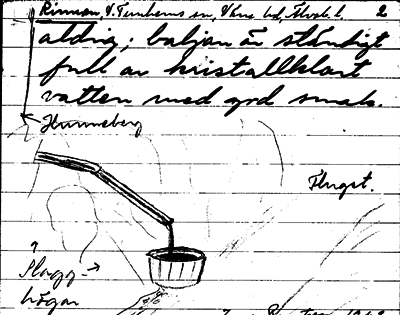 Rinnan, V. Tunhems sn, Väne hd, Älvsb. l. 2
aldrig; baljan är ständigt
full av kristallklart
vatten med god smak.
Hunneberg
Flygst.
Slagg-
högar